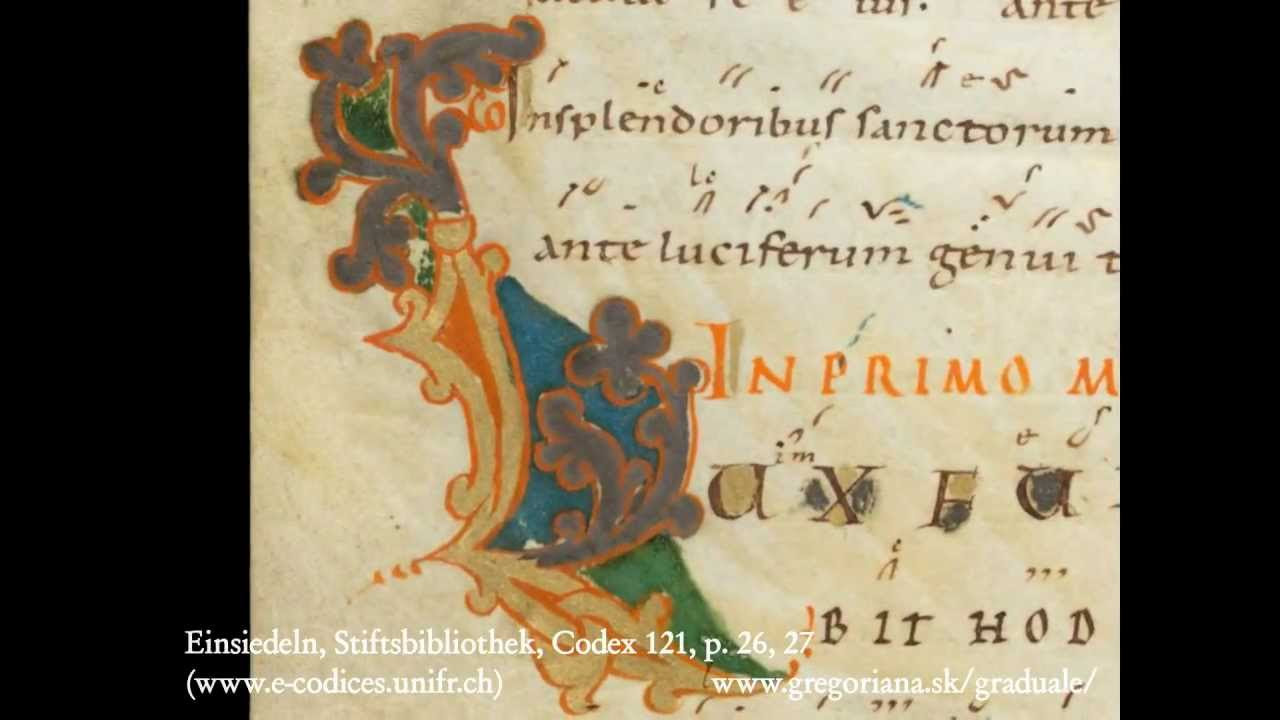 ante
Insplendoribus sanctorum
ante luciferum genui t
IN PRIMO M
UX FU
BIT HOD
Einsiedeln, Stiftsbibliothek, Codex 121, p. 26, 27
(www.e-codices.unifr.ch) www.gregoriana.sk/graduale/